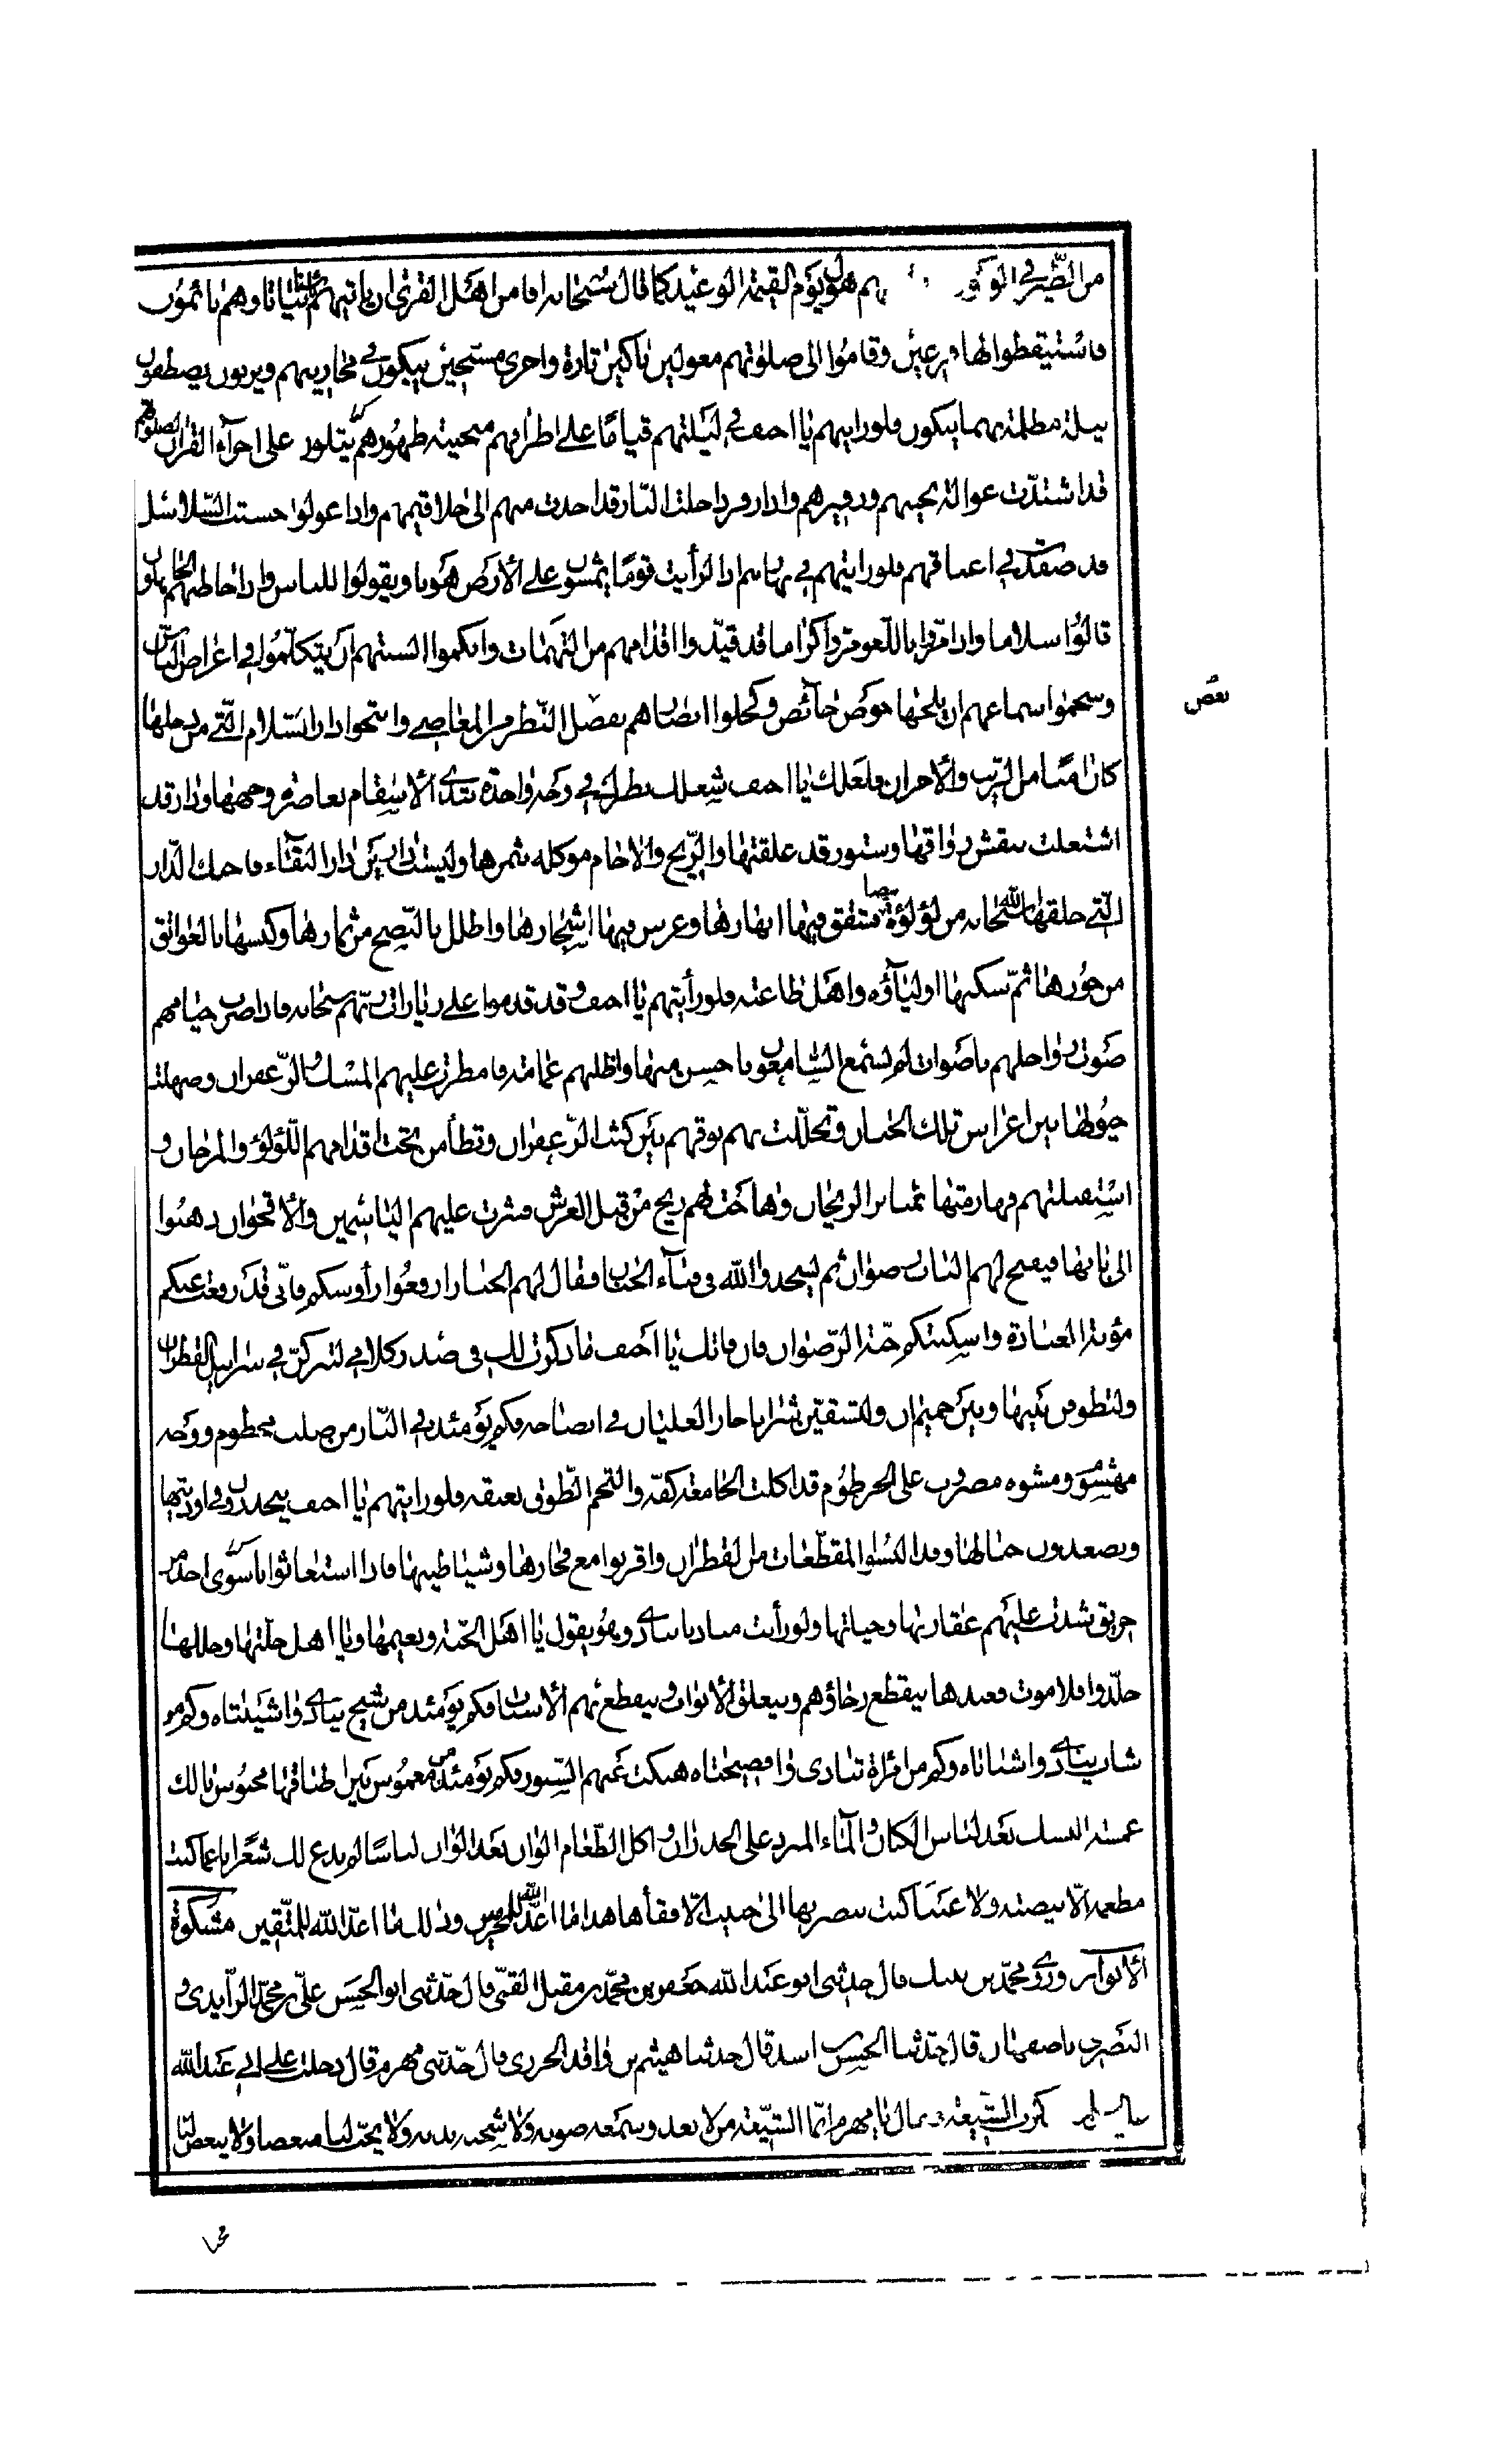 من الطير في الوكور بهم هول يوم القيمة الوعيد كما قال سبحانه افامن اهل القرى ان ياتيهم باسنا بياتا وهم نائمون
فاستيقظوا لها فزعين وقاموا الى صلوتهم معولين باكين تارة واخرى مسبحين يبكون في محاريبهم ويرنون يصطفون
ليلة مظلمة بهماء يبكون فلو رايتهم يا احنف في ليلتهم قياما على اطرافهم منحنية ظهورهم يتلون على اجزاء القران لصلوتهم
قد اشتدت عوالة نحيبهم وزفيرهم واذا زفروا خلت النار قد اخذت منهم الى حلاقيمهم واذا عولوا حسبت السلاسل
قد صفدت في اعناقهم فلو رايتهم في نهارهم اذا لرأيت قوما يمشون على الأرض هونا ويقولوا للناس واذا خاطبهم الجاهلون
قالوا سلاما واذا مروا باللغو مروا كراما قد قيدوا اقدامهم من التهمات وابكموا السنتهم ان يتكلموا في اعراض الناس
وسجموا اسماعهم ان يلجها خوض خائض وكحلوا ابصارهم بغض النظر من المعاصي وانتحوا دار السلام التي من دخلها
كان امنا من الريب والأحزان فلعلك يا احنف شغلك نظرك في وجه واحدة تبدي الأسقام بغاضرة وجهها ودار قد
اشتغلت بنقش رواقها وستور قد علقتها والريح والاجام موكلة بثمرها وليست دارك دار البقاء فاحمك الدار
التي خلقها الله سبحانه من لؤلؤة بيضاء فشقق فيها انهارها وغرس فيها اشجارها واظلل بالنضج من ثمارها وكبسها بالعواتق
من حورها ثم سكنها اولياؤه واهل طاعته فلو رأيتهم يا احنف وقد قدموا على زيادات ربهم سبحانه فاذا ضرب جنائبهم
صوت رواحلهم باصوات لم يسمع السامعون باحسن منها واظلتهم غمامة فامطرت عليهم المسك والزعفران وصهلت
خيولها بين اغراس تلك الجنان وتخللت بهم نوقهم بين كثب الزعفران وتطأ من تحت اقدامهم اللؤلؤ والمرجان و
استقبلتهم قهارمتها بمنابر الريحان وهاجت لهم ريح من قبل العرش فنثرت عليهم الياسمين والأقحوان ذهبوا
الى بابها فيفتح لهم الباب رضوان ثم يسجدوا لله في فناء الجنان فقال لهم الجبار ارفعوا رؤسكم فاني قد رفعت عنكم
مؤنة العبادة واسكنتكم جنة الرضوان فان فاتك يا احنف ما ذكرت لك في صدر كلامي لتتركن في سرابيل القطران
ولتطوفن بينها وبين حميم ان ولتسقين شرابا حار الغليان في انضاجه فكم يومئذ في النار من صلب محطوم ووجه
مهشوم ومشوه مضروب على الخرطوم قد اكلت الجامعة كفه والتحم الطوق بعنقه فلو رايتهم يا احنف ينحدرون في اوديتها
ويصعدون جبالها وقد البسوا المقطعات من القطران واقرنوا مع فجارها وشياطينها فاذا استغاثوا باسوى اخذ من
حريق شدت عليهم عقاربها وحياتها ولو رأيت مناديا ينادي وهو يقول يا اهل الجنة ونعيمها ويا اهل حليتها وحللها
خلدوا فلا موت فعندها ينقطع رجاؤهم وينغلق الأبواب وينقطع بهم الأسباب فكم يومئذ من شيخ ينادي واشيبتاه وكم من
شاب ينادي واشباباه وكم من امرأة تنادي وافضيحتاه هتكت عنهم الستور فكم يومئذ من مغموس بين اطباقها محبوس يا لك
غمسة البسك بعد لباس الكتان والماء المبرد على الجدران واكل الطعام الوان بعد الوان لباسا لم يدع لك شعرا ناعما كنت
مطعمه الا بيضه ولا عينا كنت تبصر بها الى حبيب الا فقأها هذا ما اعد الله للمجرمين وذلك ما اعد الله للمتقين مشكوة
الأنوار وروى محمد بن نبيك قال حدثني ابو عبد الله جعفر بن محمد بن مقبل القمي قال حدثني ابو الحسن علي بن محمد الزايدي و
البصري باصفهان قال حدثنا الحسن بن اسد قال حدثنا هيثم بن واقد الجزري قال حدثني مهزم قال دخلت على ابي عبد الله
فذكرت الشيعة فقال يا مهزم انما الشيعة من لا يعدو سمعه صوته ولا شحنه بدنه ولا يحب لنا مبغضا ولا يبغض لنا
بغض